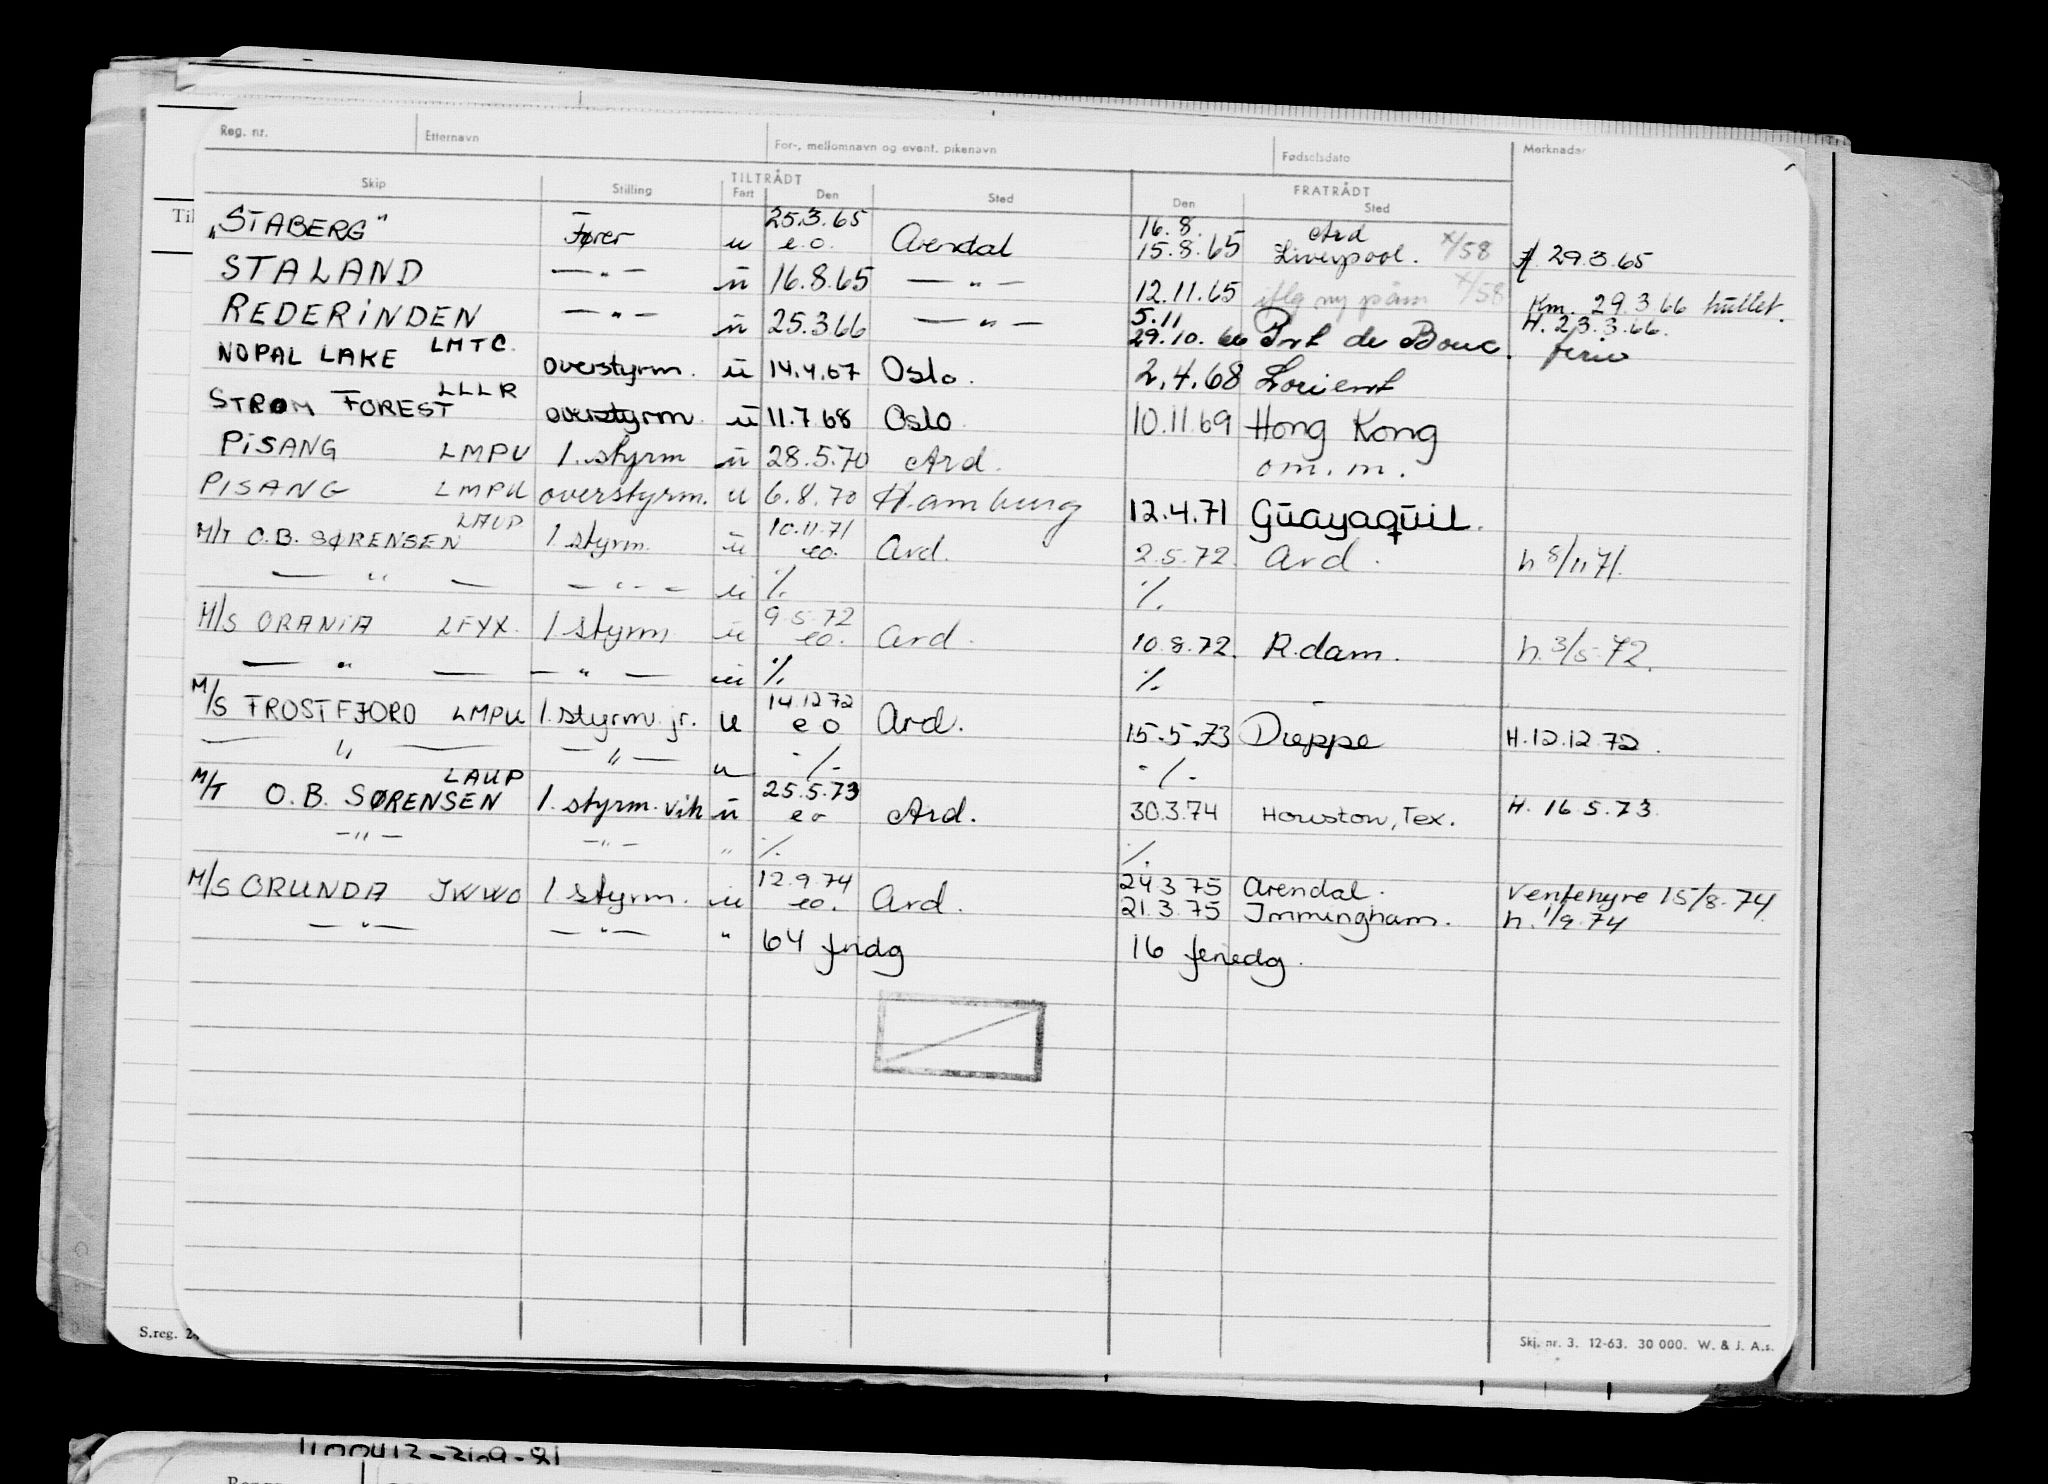 Reg. nr. Etternavn For-, mellomnavn og event. pikenavn Fødselsdato Merknader
TILTRÅDT FRATRÅDT
Skip Stilling Fart Den Sted Den Sted
Til
25.3.65 16.8. Ard
"STABERG" Fører u e.o. Arendal 15.8.65 Liverpool. x/58 29.3.65
STALAND — " — u 16.8.65 — " — 12.11.65 iflg ny påm x/58 Km. 29.3.66 hullet.
5.11 H. 23.3.66.
REDERINDEN — " — u 25.3.66 — " — 29.10.66 Port de Bouc. ferie
NOPAL LAKE LMTC overstyrm. u 14.4.67 Oslo. 2.4.68 Lorient
STRØM FOREST LLLR overstyrm. u 11.7.68 Oslo 10.11.69 Hong Kong
PISANG LMPU 1. styrm u 28.5.70 Ard. om.m.
PISANG LMPU overstyrm. u 6.8.70 Hamburg 12.4.71 Guayaquil.
LAUP 10.11.71
M/T O.B. SØRENSEN 1 styrm. u eo. Ard. 2.5.72. Ard. h 8/11 71.
— " — — " — u % %
9.5.72
M/S ORANIA LFYX. 1 styrm u eo. Ard. 10.8.72. R.dam. h. 3/5-72.
— " — — " — u % %
14.12.72
M/S FROSTFJORD LMPU 1. styrm. jr. u e o Ard. 15.5.73 Dieppe H. 12.12.72.
— " — — " — u -/- -/-
LAUP 25.5.73
M/T O.B. SØRENSEN 1. styrm. vik u e o Ard. 30.3.74 Houston, Tex. H. 16.5.73.
— " — — " — " % %
12.9.74 24.3.75 Arendal. Ventehyre 15/8-74
M/S ORUNDA JWWO 1 styrm. u eo. Ard. 21.3.75 Immingham. h. 1/9.74
— " — — " — " 64 fridg 16 feriedg.
S.reg. 2 Skj. nr. 3. 12-63. 30 000. W. & J. A.s.